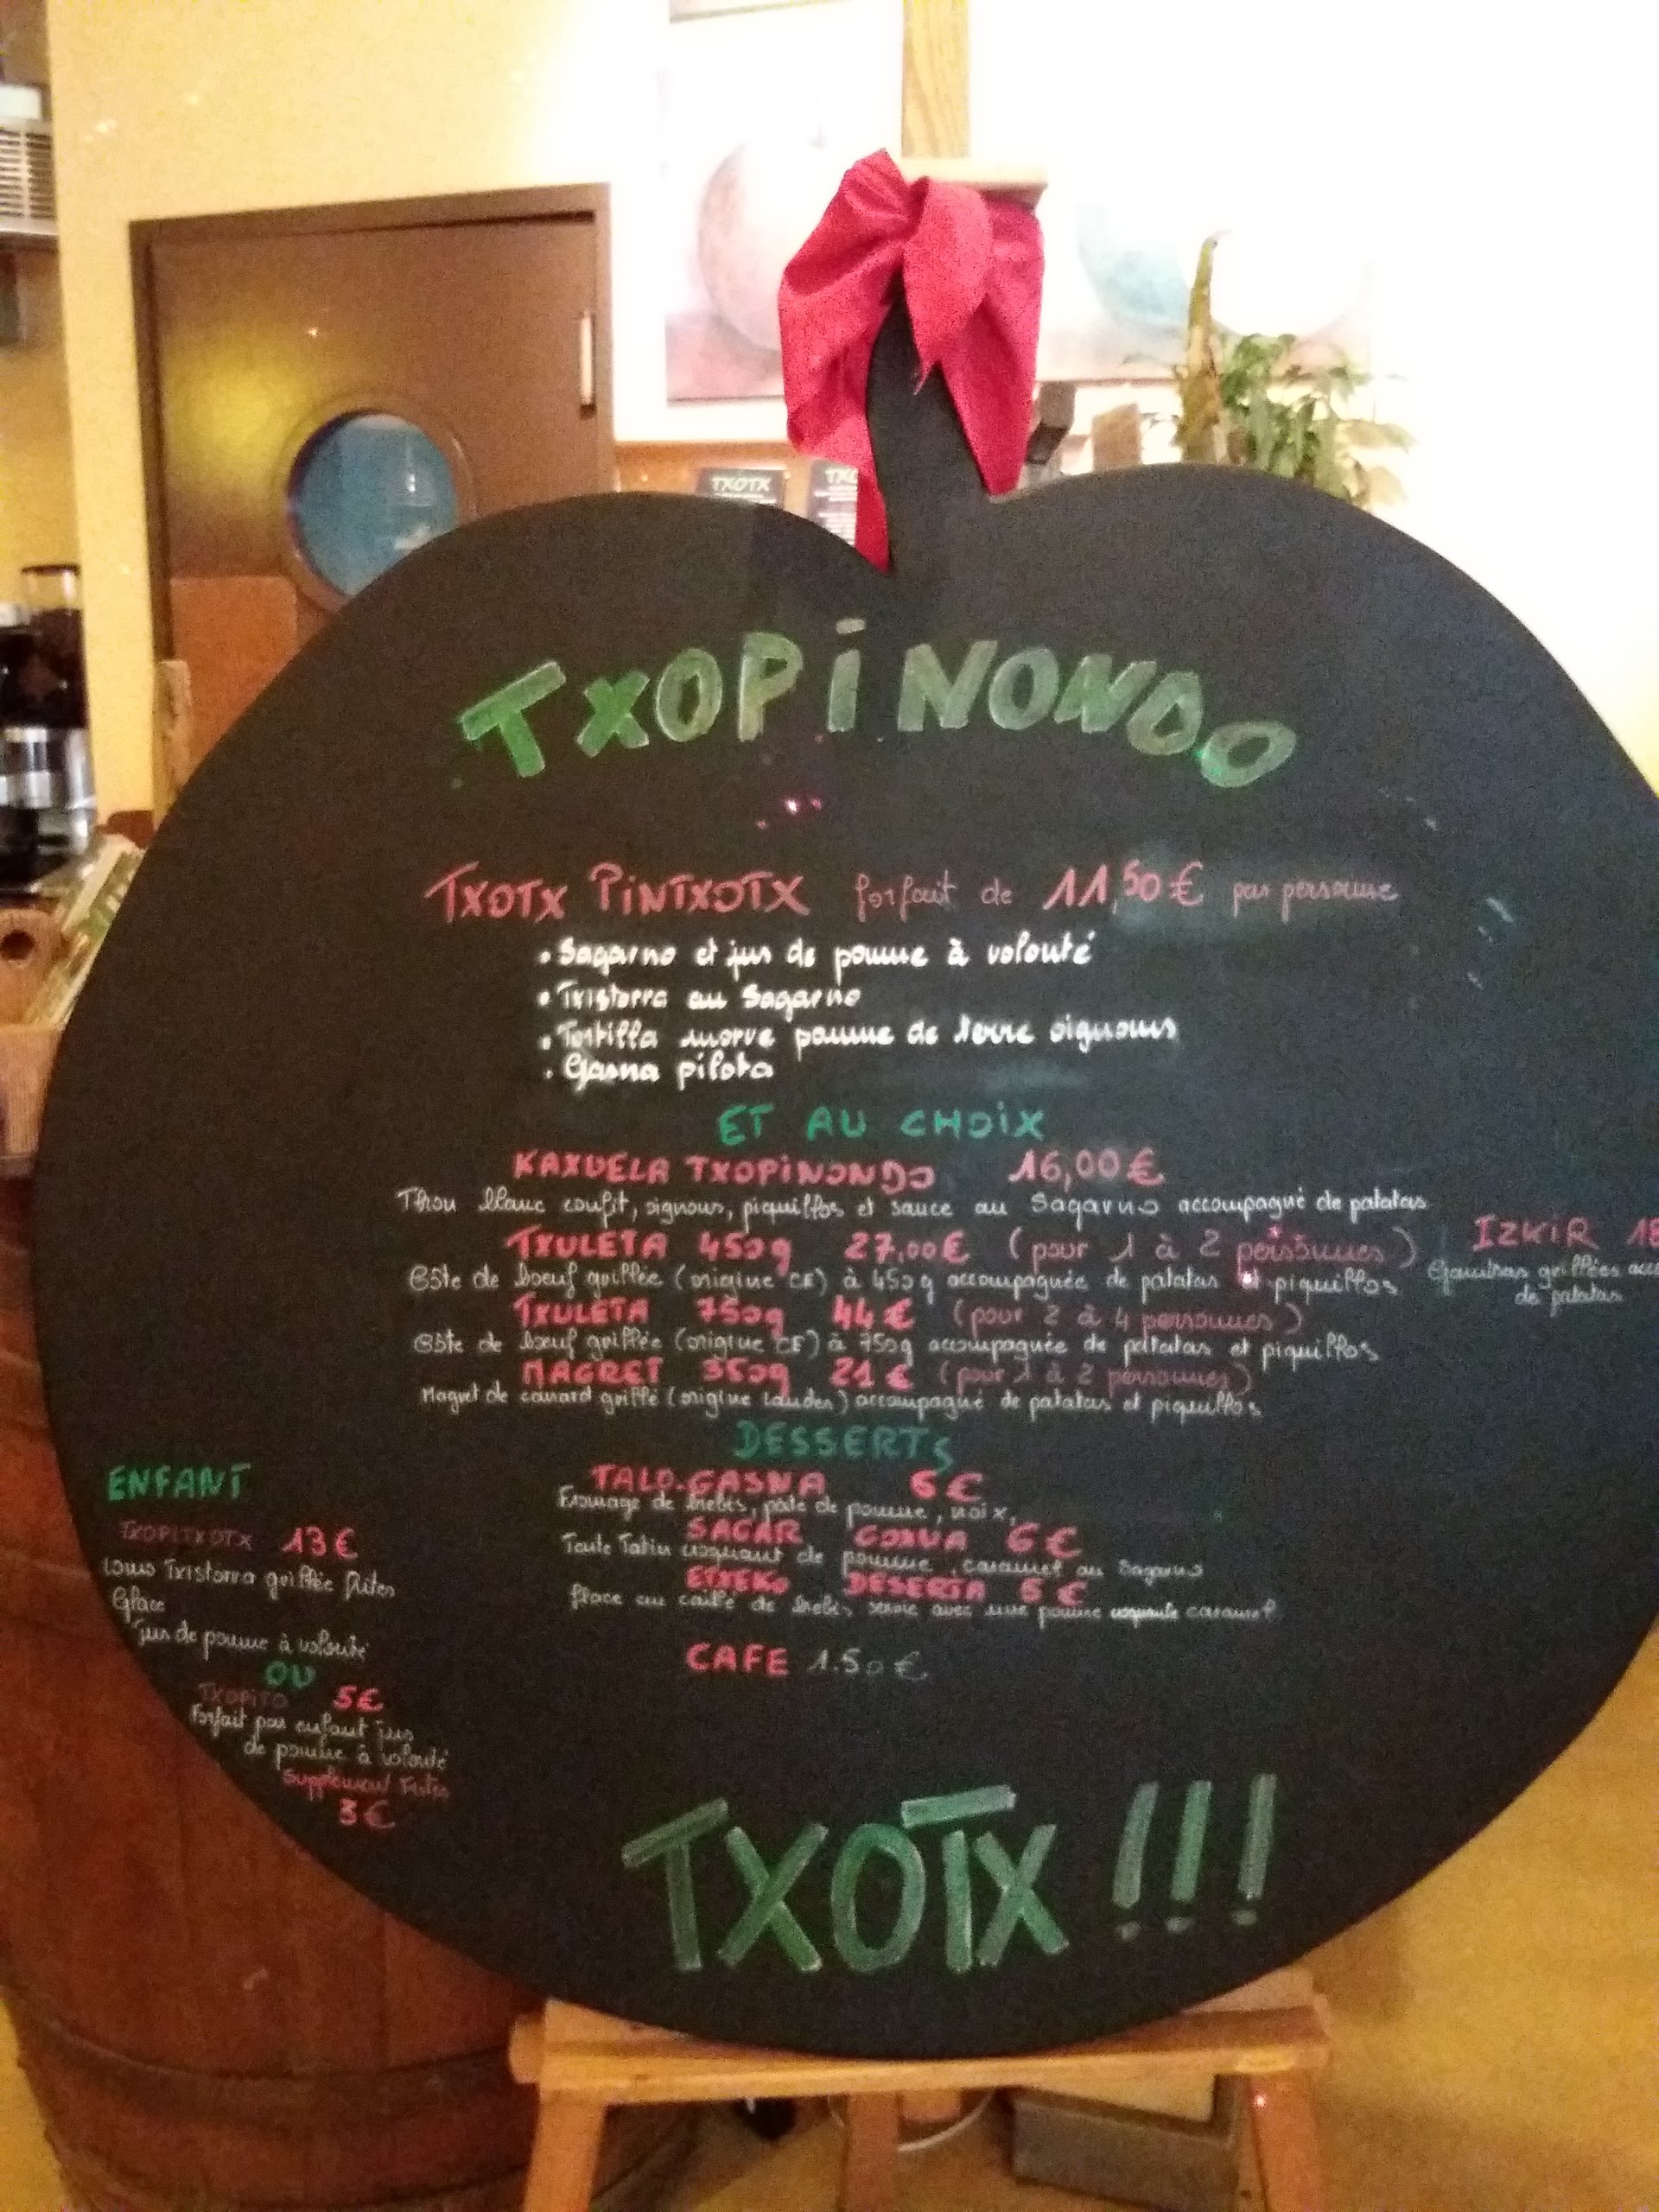 TXOTX
TXOPiNONDO
TXOTX PiNTXOTX forfait de 11,50 € par personne
• Sagarno et jus de pomme à volonté
• Txistorra au Sagarno
• Tortilla morue pomme de terre oignons
• Gasna pilota
ET AU CHOIX
KAXUELA TXOPiNONDO 16,00 €
Thon blanc confit, oignons, piquillos et sauce au Sagarno accompagné de patatas
TXULETA 450g 27,00€ (pour 1 à 2 personnes)
Côte de boeuf grillée (origine CE) à 450g accompagnée de patatas et piquillos
IZKIR 18
Gambas grillées acc
de patatas
TXULETA 750g 44 € (pour 2 à 4 personnes)
Côte de boeuf grillée (origine CE) à 750g accompagnée de patatas et piquillos
MAGRET 350g 21 € (pour 1 à 2 personnes)
Magret de canard grillé (origine Landes) accompagné de patatas et piquillos
DESSERTS
TALO-GASNA 6 €
Fromage de brebis, pâte de pomme, noix,
SAGAR GOXUA 6 €
Tatin croquant de pomme, caramel au Sagarno
ETXEKO DESERTA 6 €
glace au caillé de brebis servie avec une pomme croquante caramel
CAFE 1.50 €
ENFANT
TXOPITXOTX 13 €
Lomo Txistorra grillée frites
Glace
Jus de pomme à volonté
OU
TXOPITO 5€
Forfait par enfant jus
de pomme à volonté
Supplément Frites
3€
TXOTX !!!